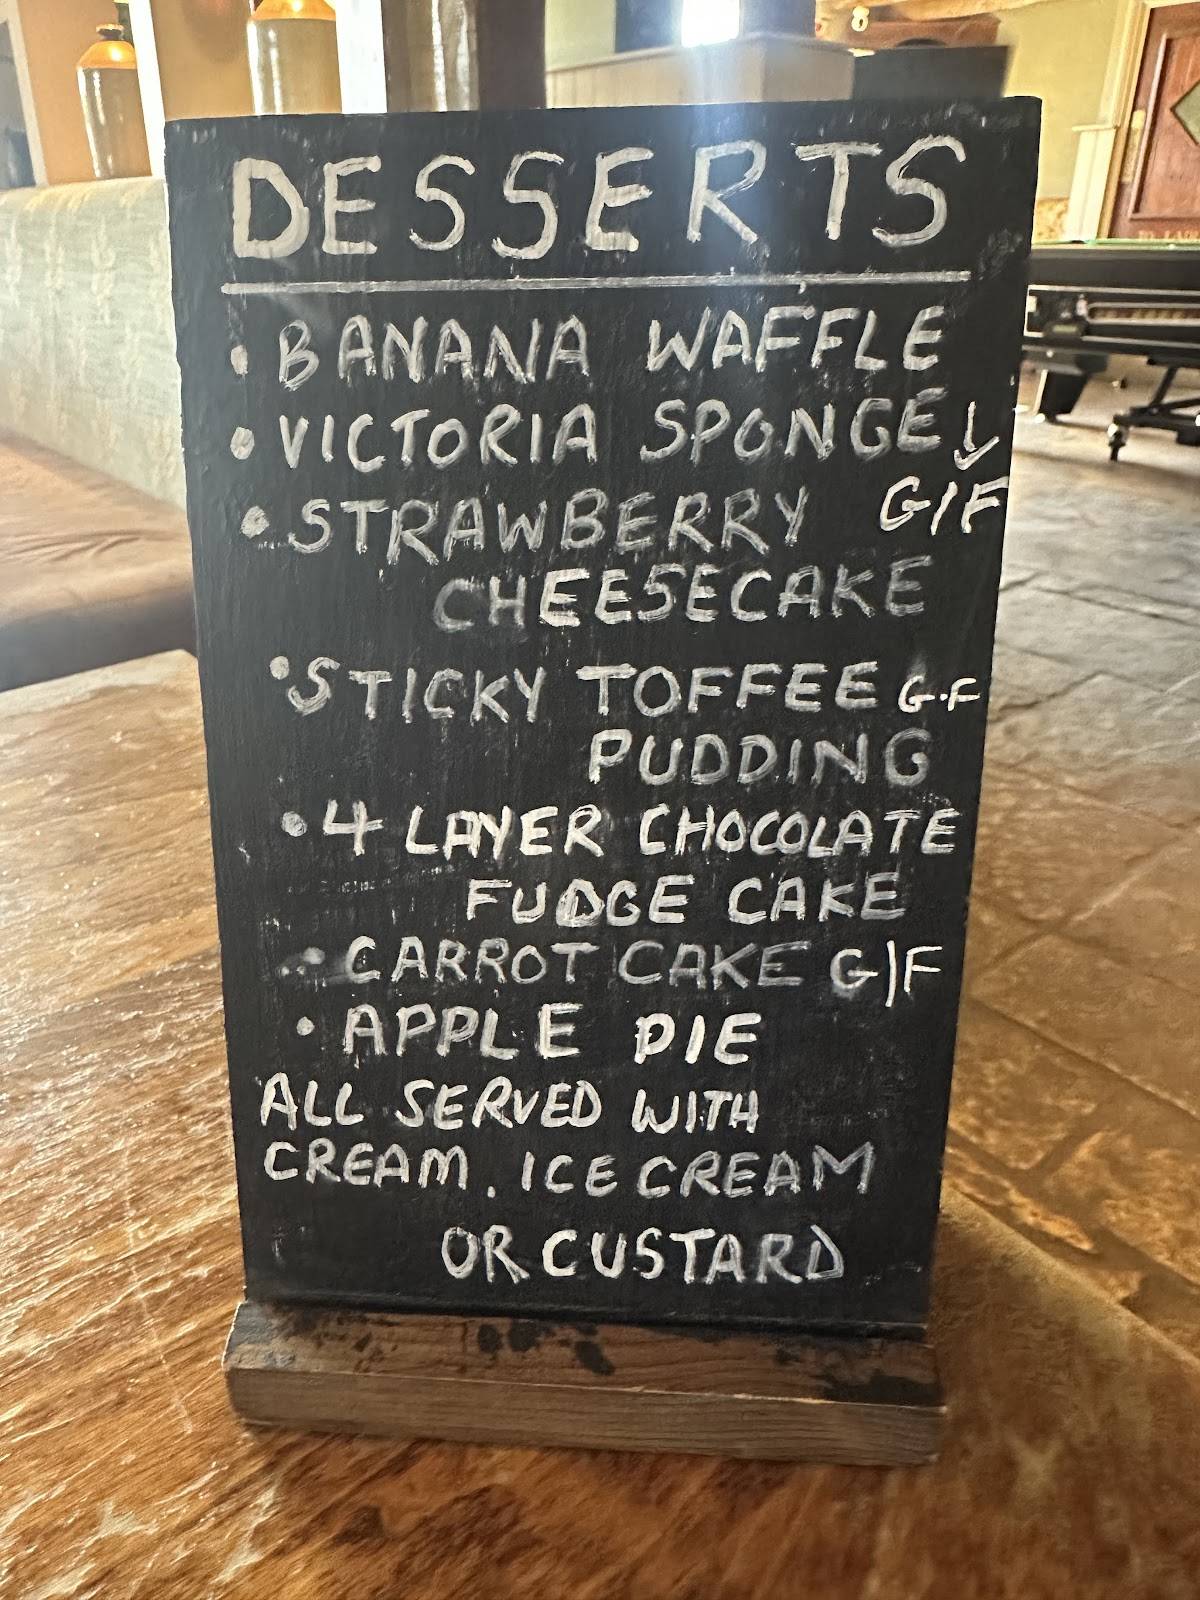 DESSERTS
• BANANA WAFFLE
• VICTORIA SPONGE ↓
• STRAWBERRY G/F
CHEESECAKE
• STICKY TOFFEE G.F
PUDDING
• 4 LAYER CHOCOLATE
FUDGE CAKE
• CARROT CAKE G|F
• APPLE PIE
ALL SERVED WITH
CREAM. ICE CREAM
OR CUSTARD